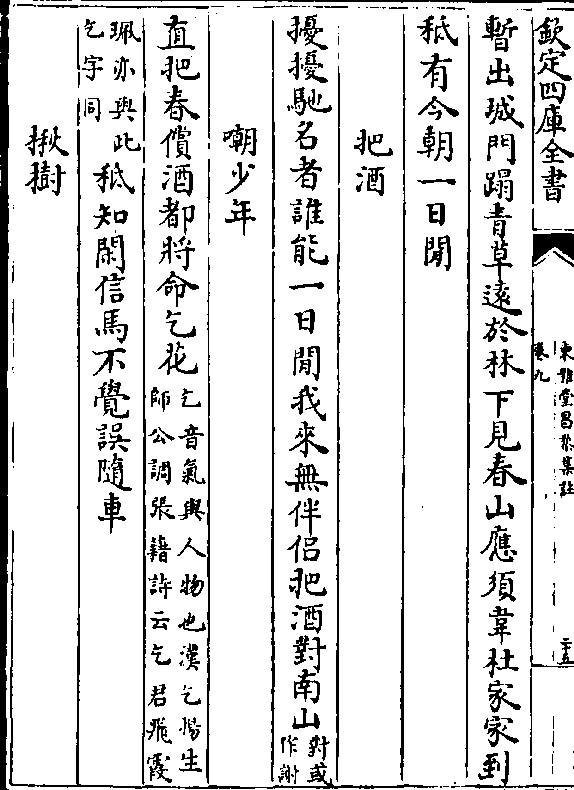 欽定四庫全書
東雅堂昌黎集註
卷九
二十五
暫出城門蹋青草遠於林下見春山應須韋杜家家到
秪有今朝一日閒
把酒
擾擾馳名者誰能一日閒我來無伴侶把酒對南山對或作謝
嘲少年
直把春償酒都將命乞花乞音氣與人物也漢乞楊生師公調張籍詩云乞君飛霞
珮亦與此乞字同秪知閑信馬不覺誤隨車
楸樹